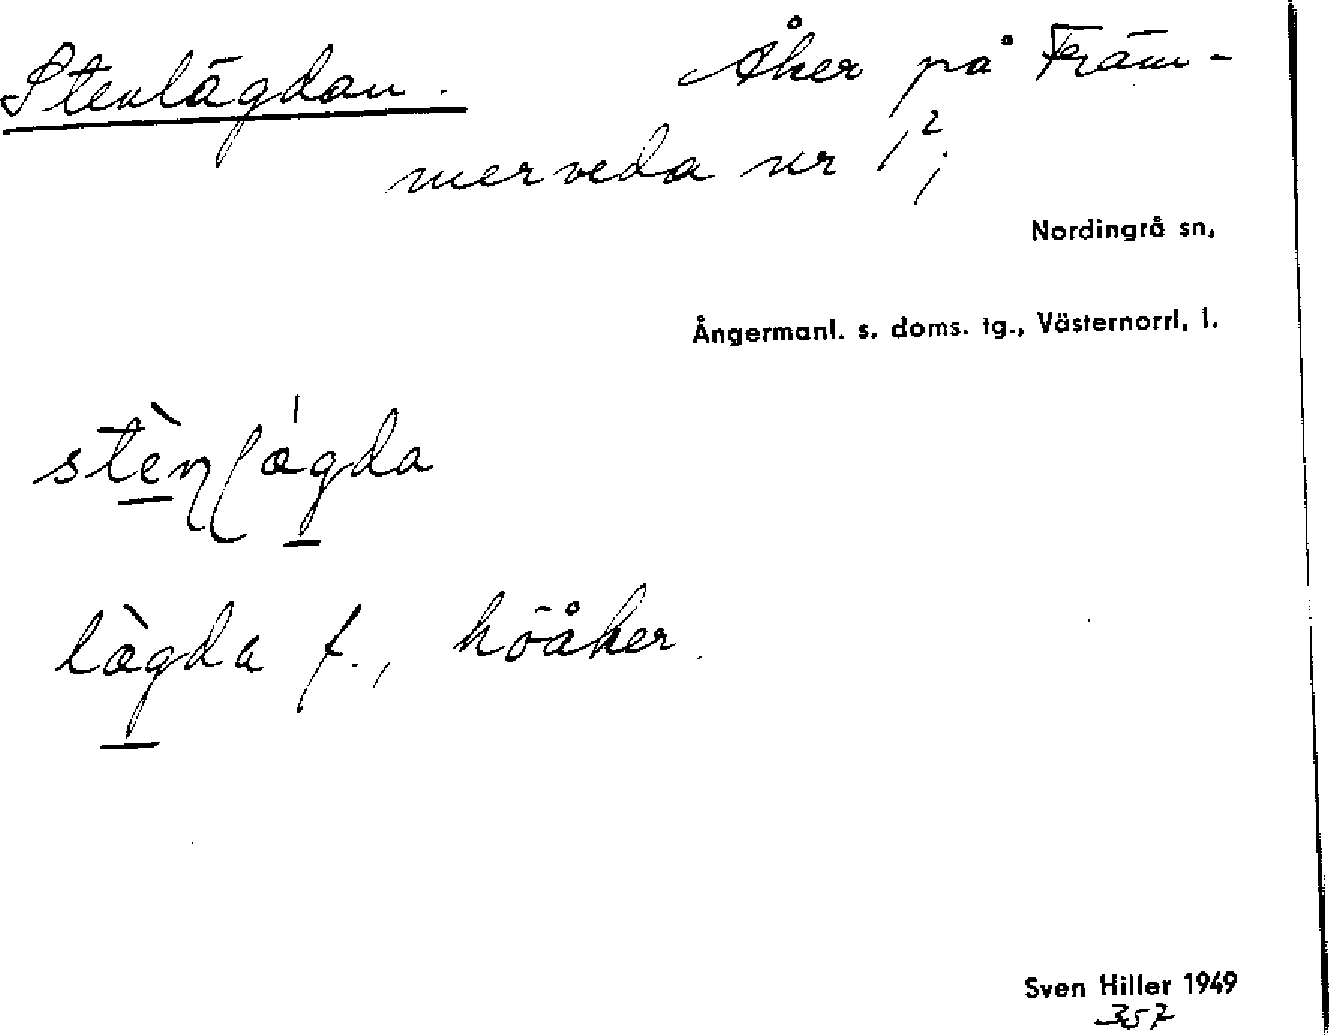 Stenlägdan. Åker på Främ-
merveda nr 1²;
Nordingrå sn,
Ångermanl. s. doms. tg., Västernorrl. l.
stènlàgda
làgda f., höåker.
Sven Hiller 1949
357